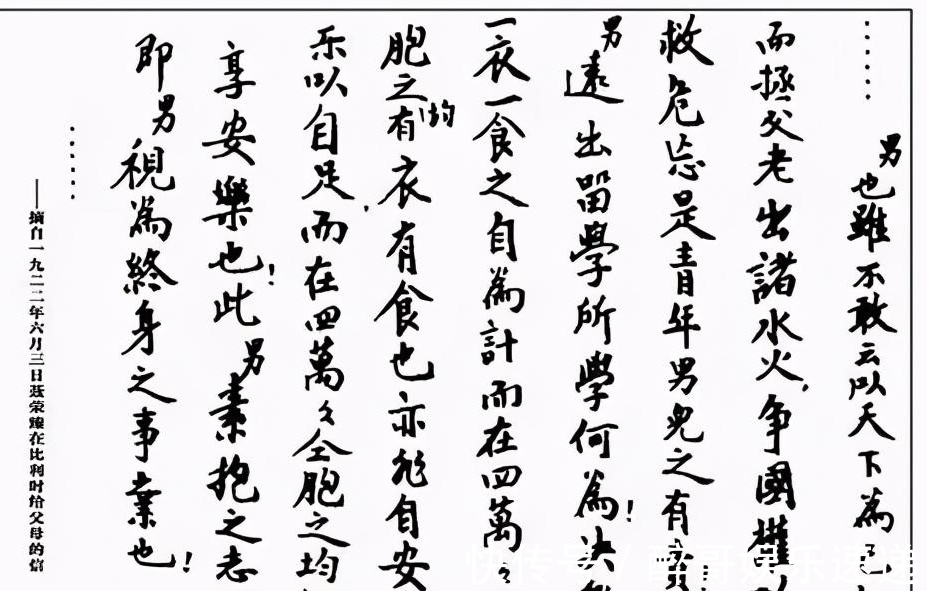 ……
男也雖不敢云以天下為己
而拯父老出諸水火，争國權
救危忘是青年男兒之有
男遠出留學所學何為！决
一衣一食之自為計而在四萬
胞之均有衣有食也亦非自安
乐以自足，而在四萬々仝胞之均
享安樂也！此男素抱之志
即男視為終身之事業也！
……
——摘自一九二二年六月三日聂荣臻在比利时给父母的信
快传号/醉哥娱乐速递